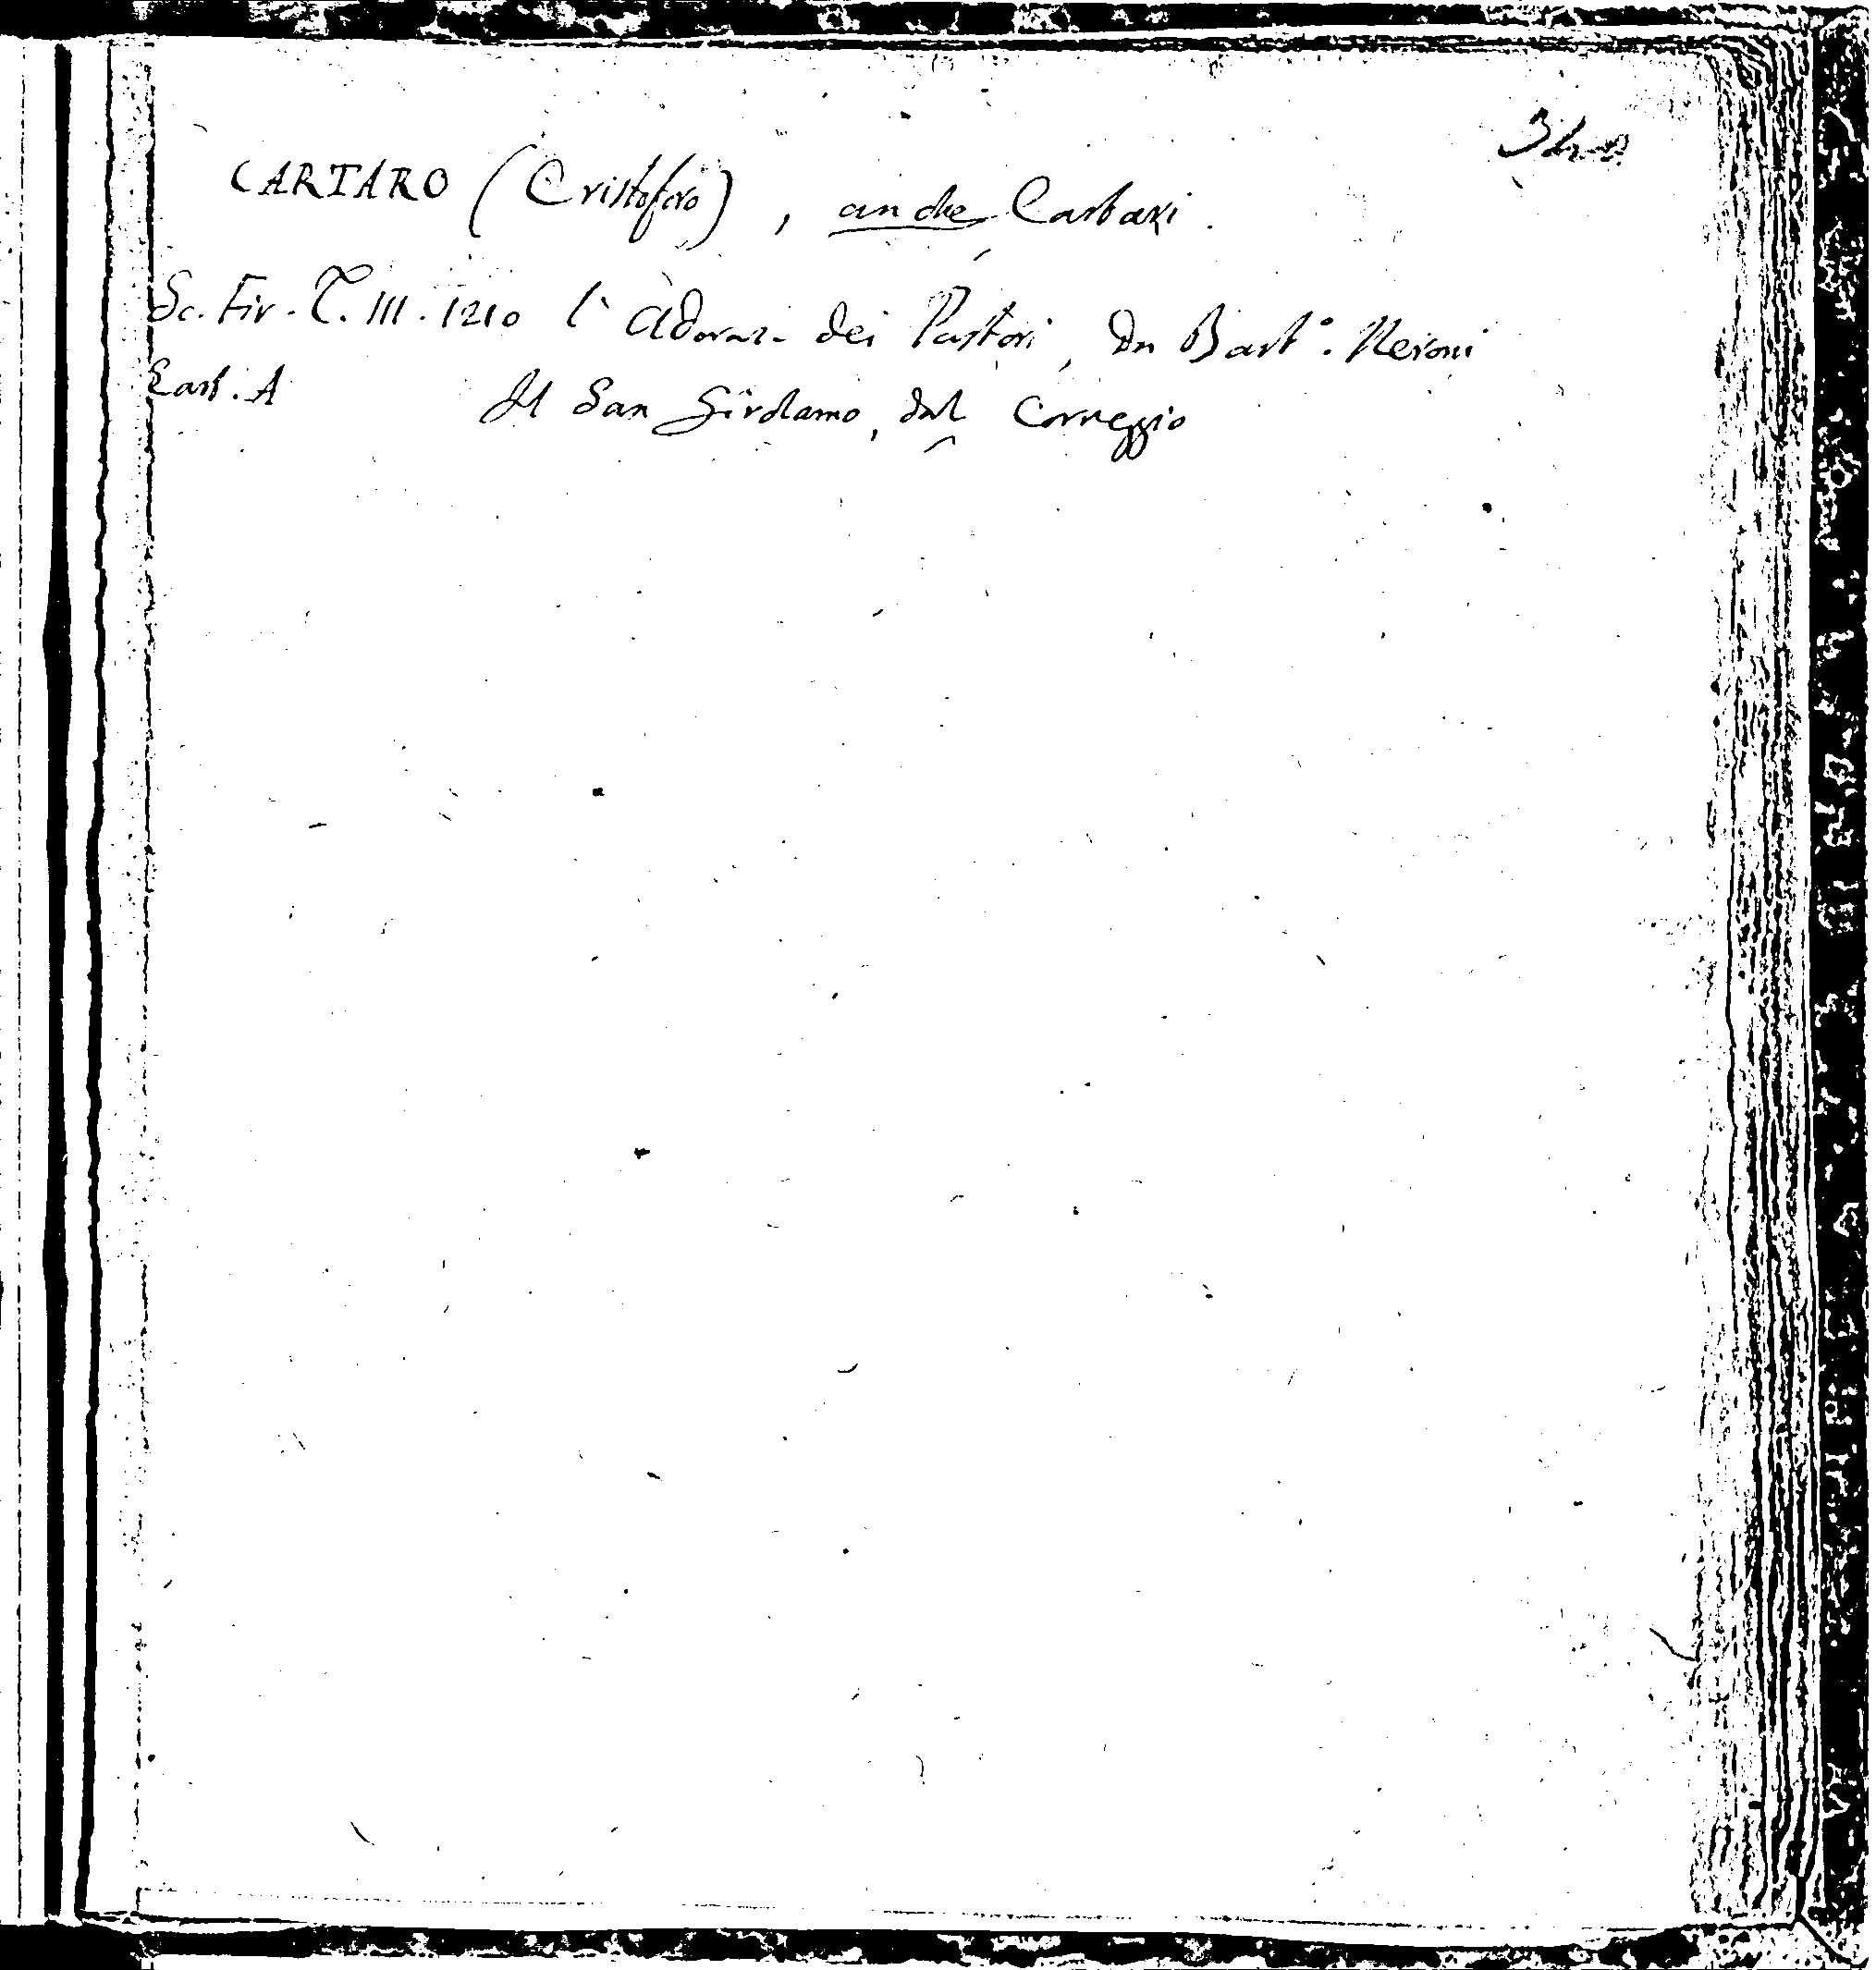 CARTARO (Cristoforo), anche Cartari.
Sc. Fir. T. III. 1210 l'Adoraz. dei Pastori, da Bart.° Neroni
Cart. A Il San Girolamo, dal Correggio